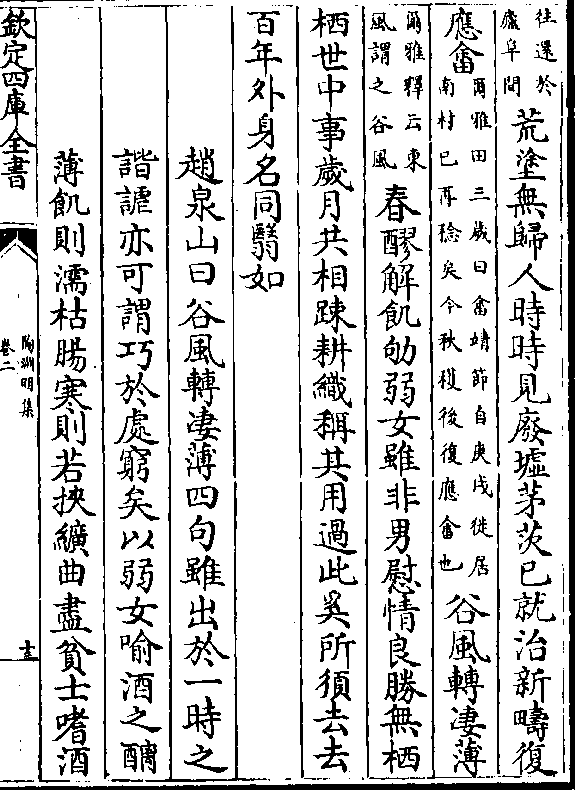 往還於
廬阜間
荒塗無歸人時時見廢墟茅茨已就治新疇復
應畬
爾雅田三歲曰畬靖節自庚戌徙居
南村已再稔矣今秋穫後復應畬也
谷風轉凄薄
爾雅釋云東
風謂之谷風
春醪解飢劬弱女雖非男慰情良勝無栖
栖世中事歲月共相踈耕織稱其用過此奚所須去去
百年外身名同翳如
趙泉山曰谷風轉凄薄四句雖出於一時之
諧謔亦可謂巧於處窮矣以弱女喻酒之醨
薄飢則濡枯腸寒則若挾纊曲盡貧士嗜酒
欽定四庫全書
陶淵明集
卷二
十三